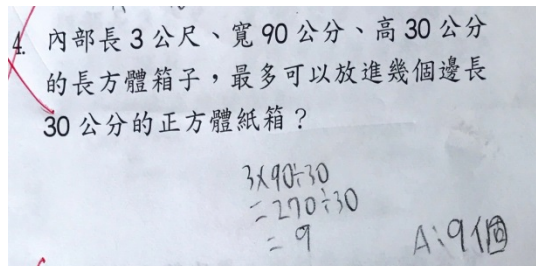 4. 內部長 3 公尺、寬 90 公分、高 30 公分
的長方體箱子，最多可以放進幾個邊長
30 公分的正方體紙箱？
3×90÷30
=270÷30
=9
A:9個